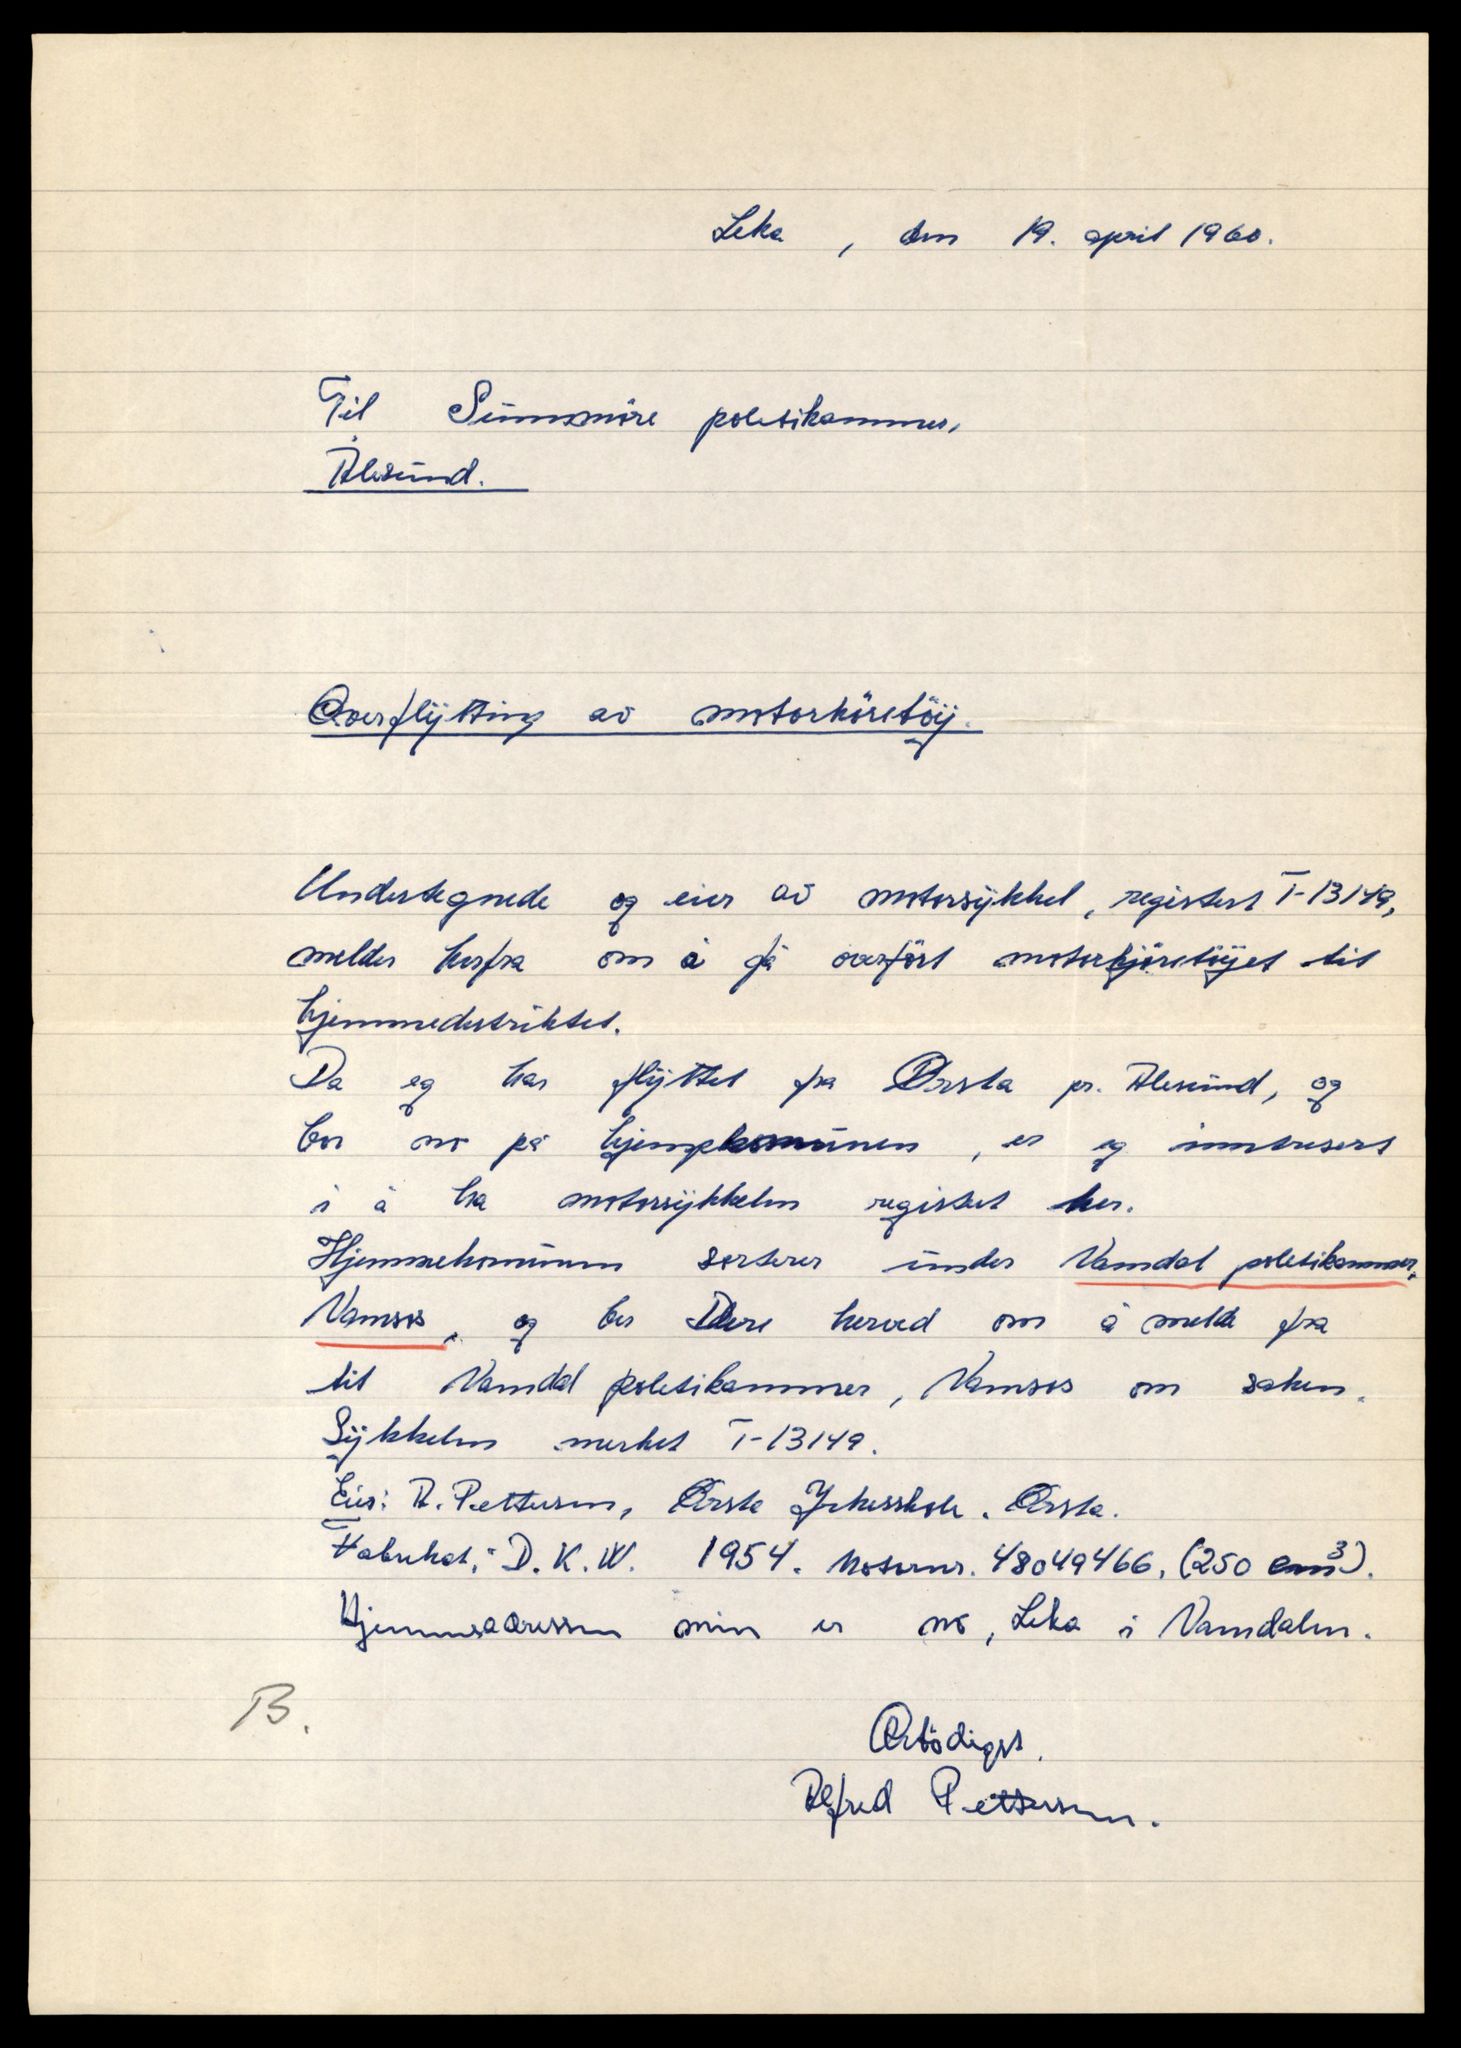 Leka, den 19. april 1960.
Til Sunnmöre politikammer,
Ålesund.
Overflytting av motorköretöy.
Undertegnede og eier av motorsykkel, registert T-13149,
melder herfra om å få overfört motorkjöretöyet til
hjemmedistriktet.
Da eg har flyttet fra Örsta pr. Ålesund, og
bor no på hjemplkommunen, er eg inntresert
i å ha motorsykkelen registert her.
Hjemmekommunen sorterer under Namdal politikammer,
Namsos, og ber Dere herved om å melde fra
til Namdal politikammer, Namsos om saken.
Sykkelen merket T-13149.
Eier: A. Pettersen, Örsta Yrkesskole. Örsta.
Fabrikat: D.K.W. 1954. Motornr. 48049466. (250 cm³).
Hjemmeadressen min er no, Leka i Namdalen.
B.
Ærbödigst.
Alfred Pettersen.